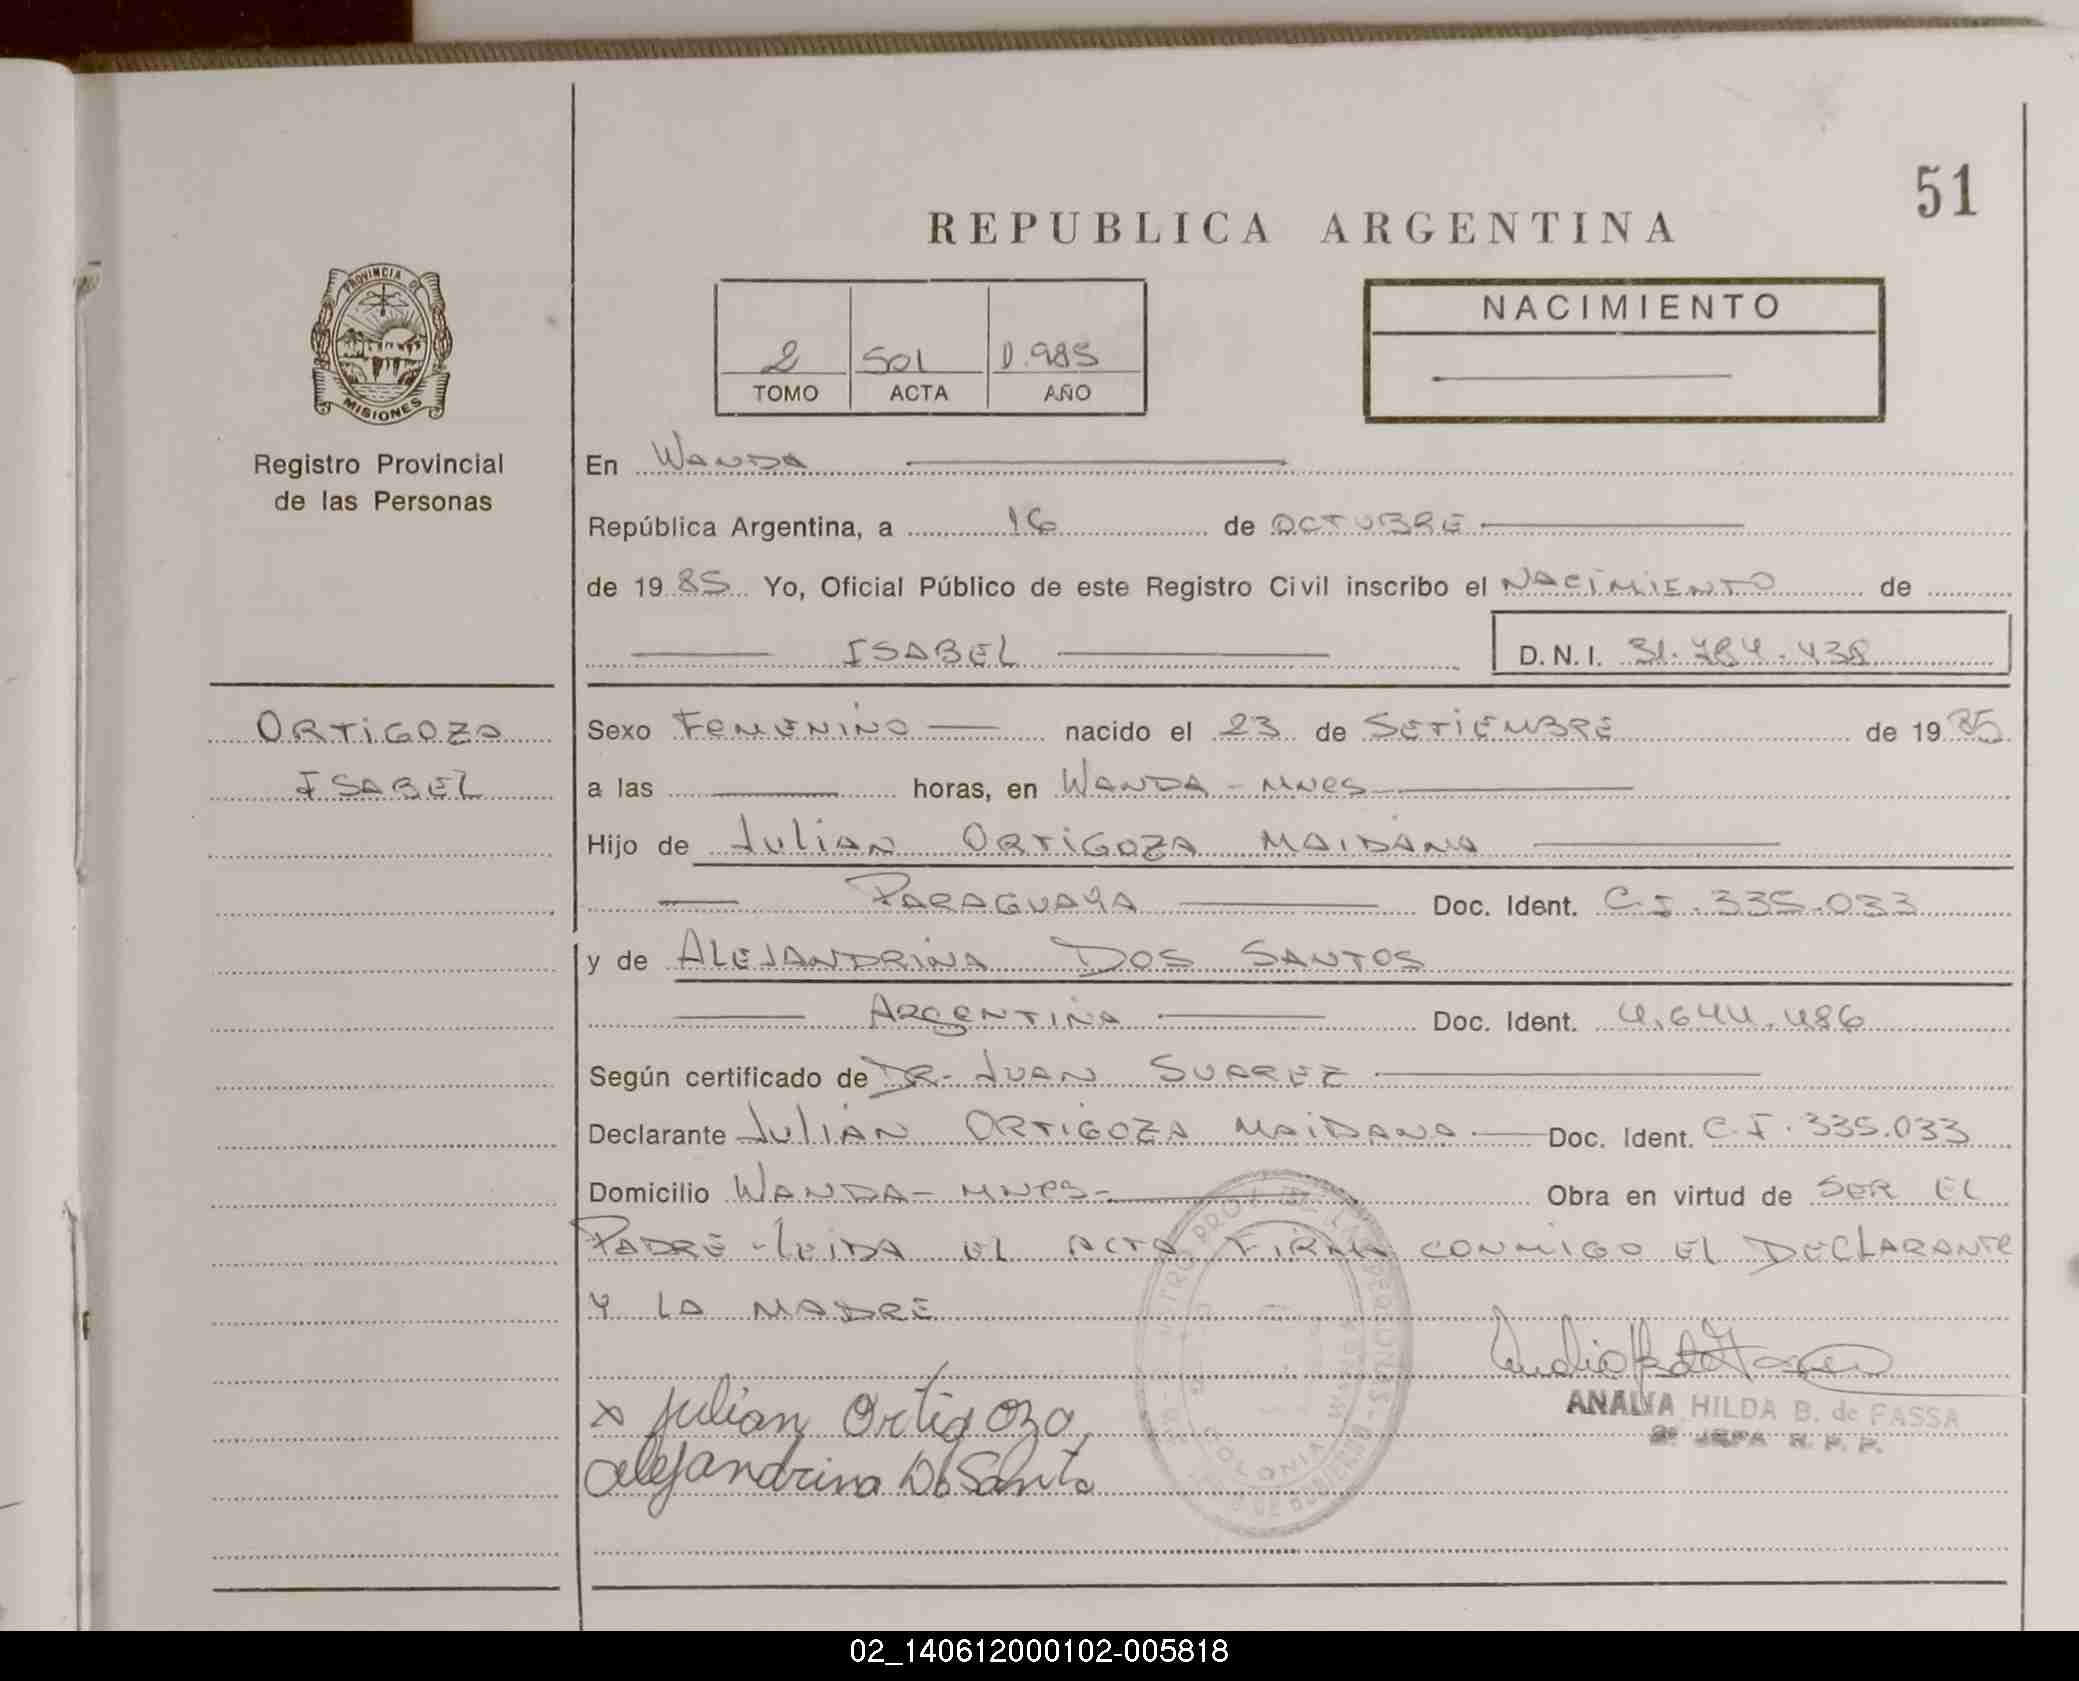 51
REPUBLICA ARGENTINA
PROVINCIA DE
MISIONES
Registro Provincial
de las Personas
2 501 1.985
TOMO ACTA AÑO
NACIMIENTO
En WANDA
República Argentina, a 16 de OCTUBRE
de 1985 Yo, Oficial Público de este Registro Civil inscribo el NACIMIENTO de
ISABEL D.N.I. 31.784.438
ORTIGOZA
ISABEL
Sexo FEMENINO nacido el 23 de SETIEMBRE de 1985
a las horas, en WANDA - MNES
Hijo de JULIAN ORTIGOZA MAIDANA
PARAGUAYA Doc. Ident. C.I. 335.033
y de ALEJANDRINA DOS SANTOS
ARGENTINA Doc. Ident. 4.644.486
Según certificado de DR. JUAN SUAREZ
Declarante JULIAN ORTIGOZA MAIDANA Doc. Ident. C.I. 335.033
Domicilio WANDA - MNES - Obra en virtud de SER EL
PADRE - LEIDA EL ACTA FIRMA CONMIGO EL DECLARANTE
Y LA MADRE
x Julian Ortigoza
alejandrina
ANALIA HILDA B. de FASSA
JEFA R. P. P.
COLONIA WANDA
02_140612000102-005818